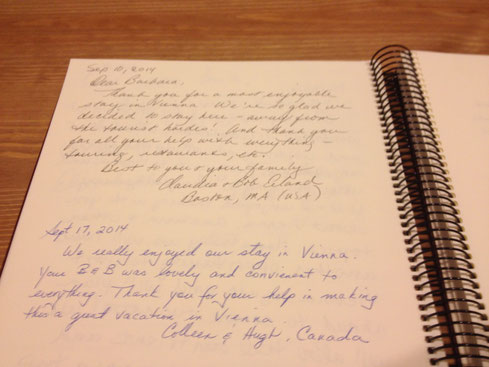 Sep 10, 2014
Dear Barbara,
Thank you for a most enjoyable
stay in Vienna. We're so glad we
decided to stay here - away from
the tourist hordes! And thank you
for all your help with everything -
touring, restaurants, etc.
Best to you & your family
Claudia & Bob
Boston, MA (USA)
Sept 17, 2014
We really enjoyed our stay in Vienna.
Your B & B was lovely and convienent to
everything. Thank you for your help in making
this a great vacation in Vienna
Colleen & Hugh, Canada